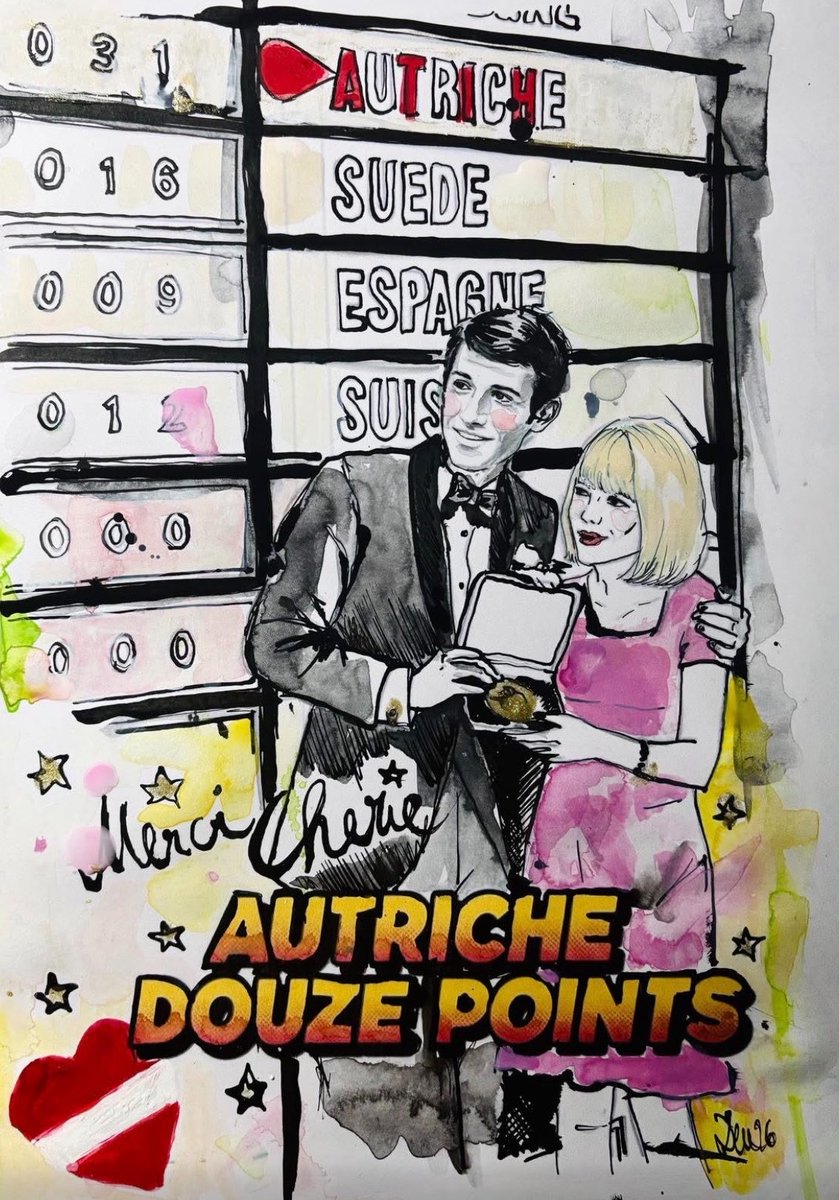 031 AUTRICHE
016 SUEDE
009 ESPAGNE
012 SUIS
000
000
Merci Cherie
AUTRICHE
DOUZE POINTS